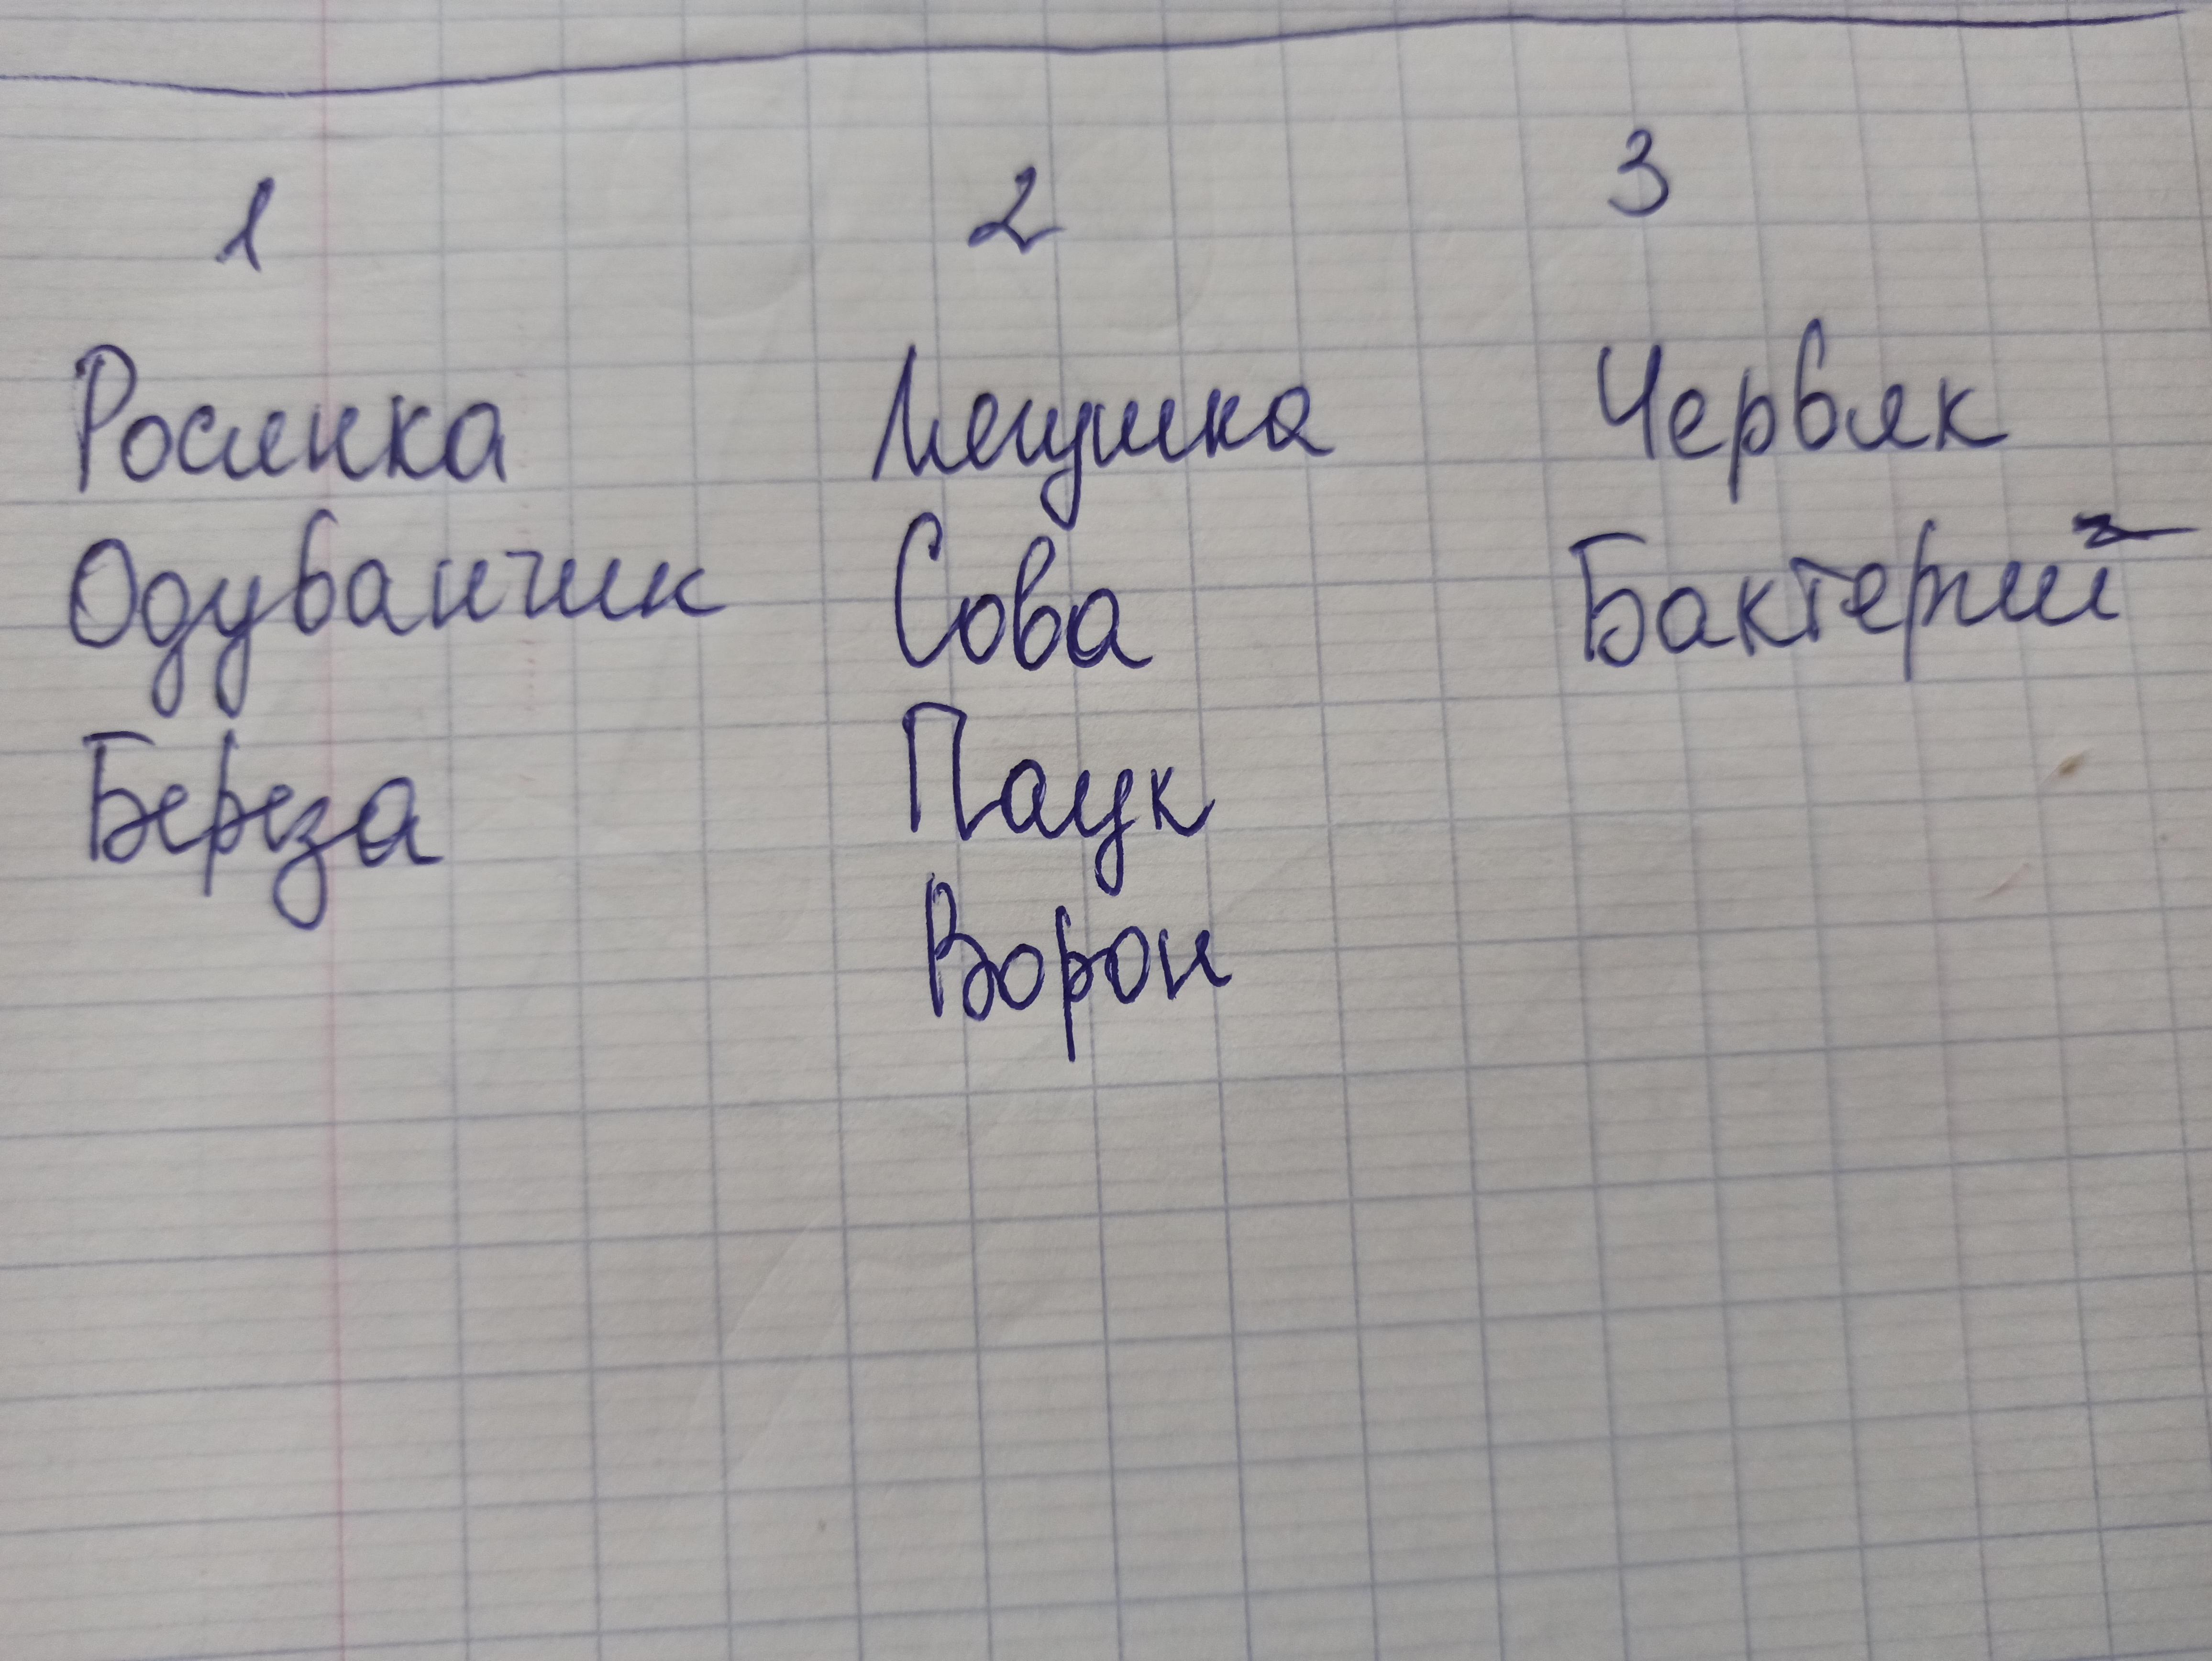 1 2 3
Росянка Лягушка Червяк
Одуванчик Сова Бактерий
Береза Паук
Ворон